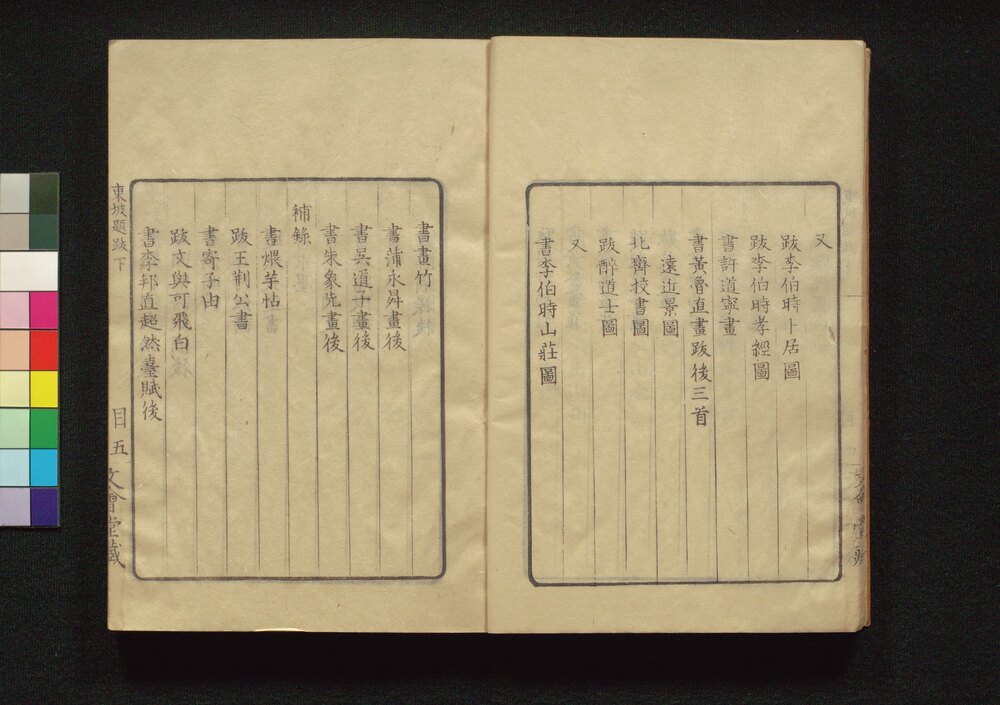 又
跋李伯時卜居圖
跋李伯時孝經圖
書許道寧畫
書黃魯直畫跋後三首
遠近景圖
北齊挍書圖
跋醉道士圖
又
書李伯時山莊圖
書畫竹
書蒲永昇畫後
書吳道子畫後
書朱象先畫後
補錄
書煨芋帖
跋王荊公書
書寄子由
跋文與可飛白
書李邦直超然臺賦後
東坡題跋下
目五
文會堂藏